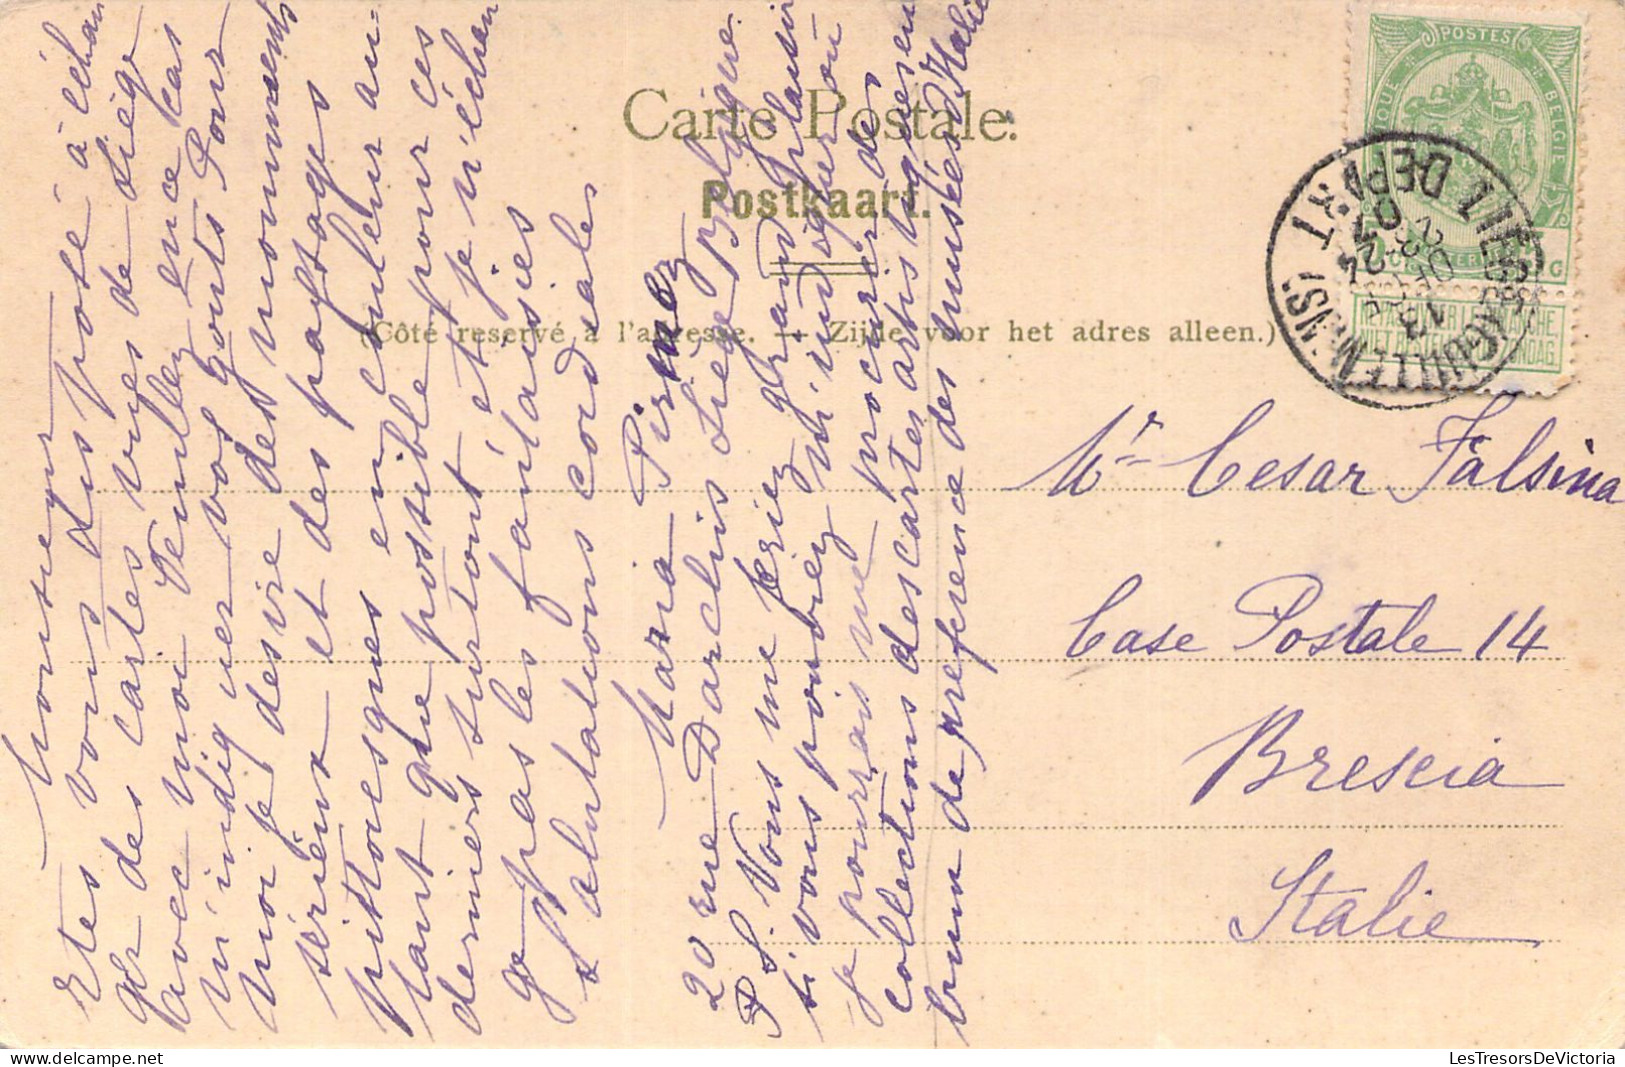 Monsieur
Etes vous disposé à échan
ger des cartes vues de Liège
avec moi Veuillez en ce cas
m'indiquer vos gouts Pour
moi je désire des monuments
sérieux et des paysages
pittoresques en couleur au-
tant que possible pour ces
derniers surtout et je n'échan
ge pas les fantaisies
Salutations cordiales
Maria Pirnez
20 rue Darchis Liège Belgique
P. S. Vous me feriez grand plaisir
si vous pouviez m'indiquer où
je pourrais me procurer des
collections des cartes artistiques en
brun de préférence des musées d'Italie
Carte Postale.
Postkaart.
(Côté reservé à l'adresse. — Zijde voor het adres alleen.)
POSTES
BELGIQUE BELGIE
NE PAS LIVRER LE DIMANCHE
NIET BESTELLEN OP ZONDAG
LIEGE (GUILLEMINS)
DEPART
Mr Cesar Falsina
Case Postale 14
Brescia
Italie
LesTresorsDeVictoria